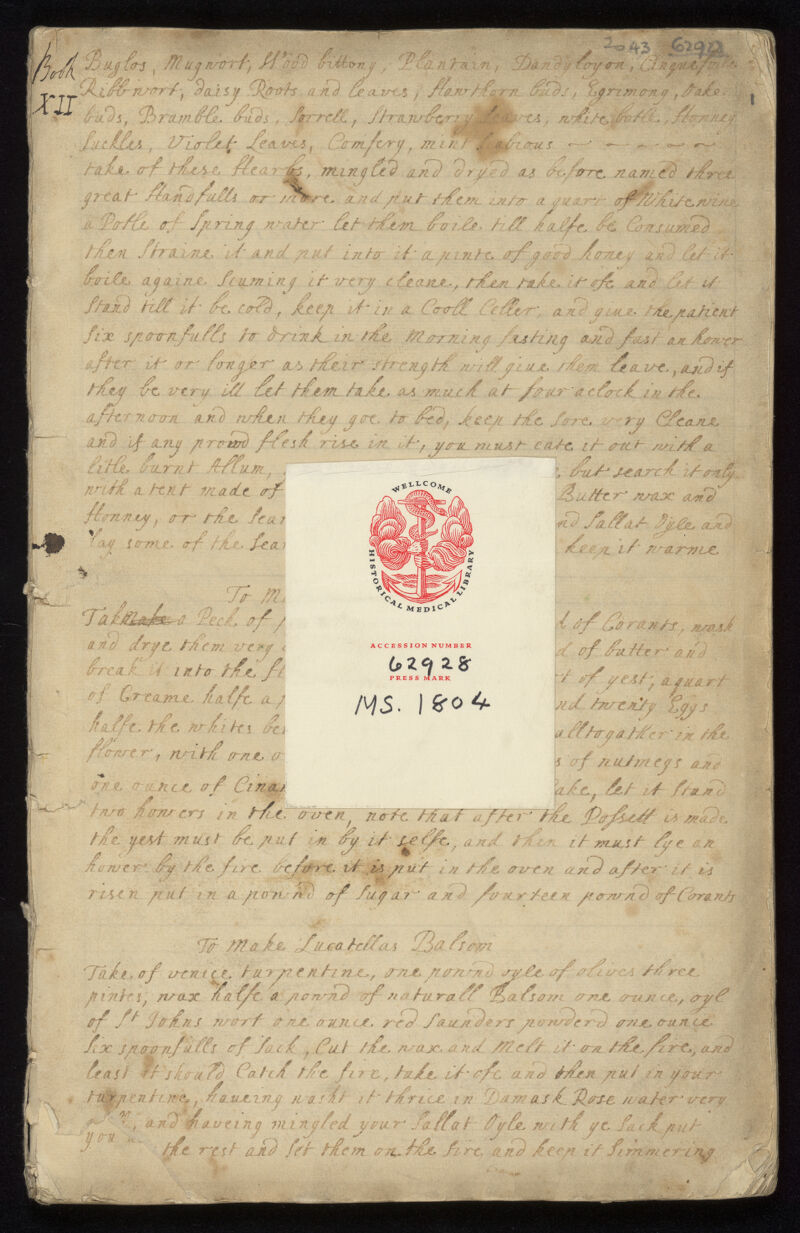 2043 62928
Book
XII
1
Buglos, Mugwort, Wood bittony, Plantain, Dandylyon, Cinquefoile
Ribbwort, daisy Roots and leaves, Hawthorn buds, Egrimony, oake
buds, Bramble buds, Sorrell, Strawberry Leaves, white botle, Honney
Suckles, Violet Leaves, Comfery, mint Scabious
take of these Hearbs, mingled and dryed as before named three
great Handfulls or more and put them into a quart of White wine
a Potle of Spring water let them boile till halfe be Consumed
then Straine it and put into it a pinte of good honey and let it
boile againe Scuming it very cleane, then take it ofe and let it
Stand till it be cold, keep it in a Cooll Celler, and giue the patient
Six spoonfulls to drink in the Morning fasting and fast an hower
after it or longer as their strength will giue them leave, and if
they be very ill let them take as much at four aclock in the
afternoon and when they goe to bed, keep the Sore very Cleane
and if any prowd flesh rise in it, you must eate it out with a
litle burnt Allum, but search it only
with a tent made of Butter wax and
Honney, or the Sear nd Sallat Oyle and
lay some of the Sea keep it warme
To M
Take make a Peck of d of Corants, wash
and drye them very d of butter and
break it into the fl t of yest, a quart
of Creame halfe a nd twenty Eggs
halfe the whites be alltogather in the
flower, with one o s of nutmegs and
one ounce of Cina ake, let it stand
two howers in the oven, note that after the Possett is made
the yest must be put in by it selfe, and then it must lye an
hower by the fire before it is put in the oven and after it is
risen put in a pownd of Sugar and fourteen pownd of Corants
To make Lucatellas Balsom
Take of venice turpentine, one pownd oyle of olives three
pintes, wax halfe a pownd of naturall Balsom one ounce, oyl
of St Johns wort one ounce red Saunders powderd one ounce
Six spoonfulls of Sack, Cut the wax and Melt it on the fire, and
least it should Catch the fire, take it ofe and then put in your
turpentine, haueing washt it thrice in Damask Rose water very
and haveing mingled your Sallat Oyle with ye Sack put
you the rest and Set them on the fire and keep it Simmering
WELLCOME
HISTORICAL MEDICAL LIBRARY
ACCESSION NUMBER
62928
PRESS MARK
MS. 1804